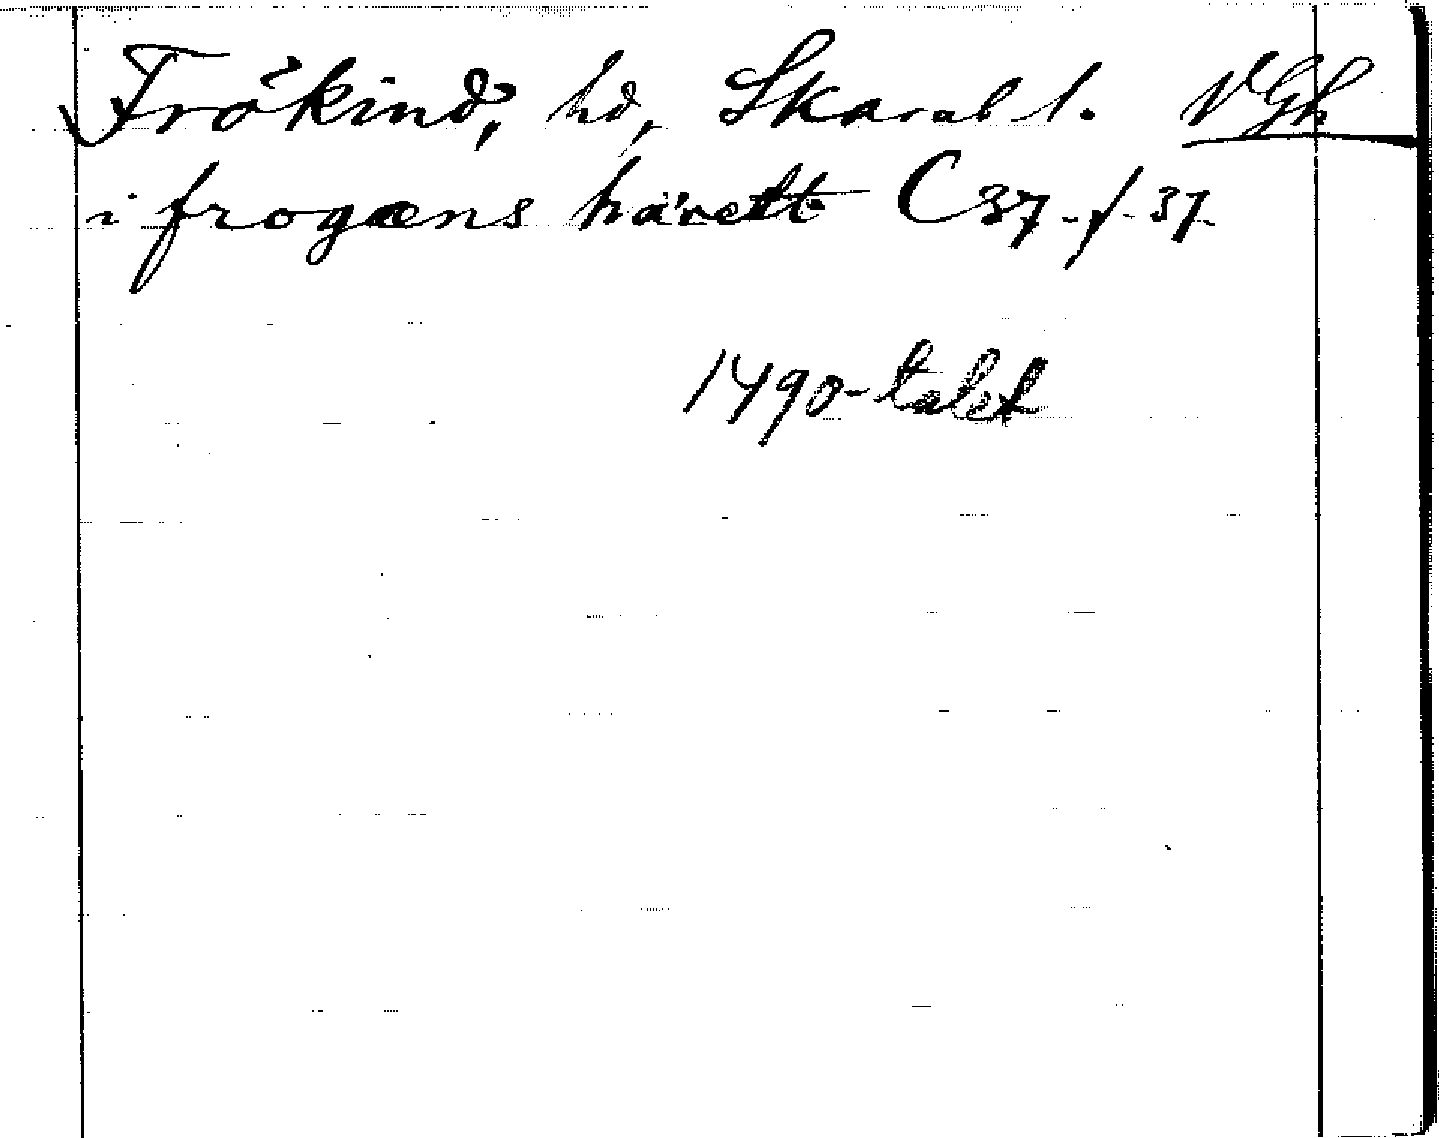 Frökind, hd, Skarab l. VGh
i frogæns härett C 37 f 37
1490-talet